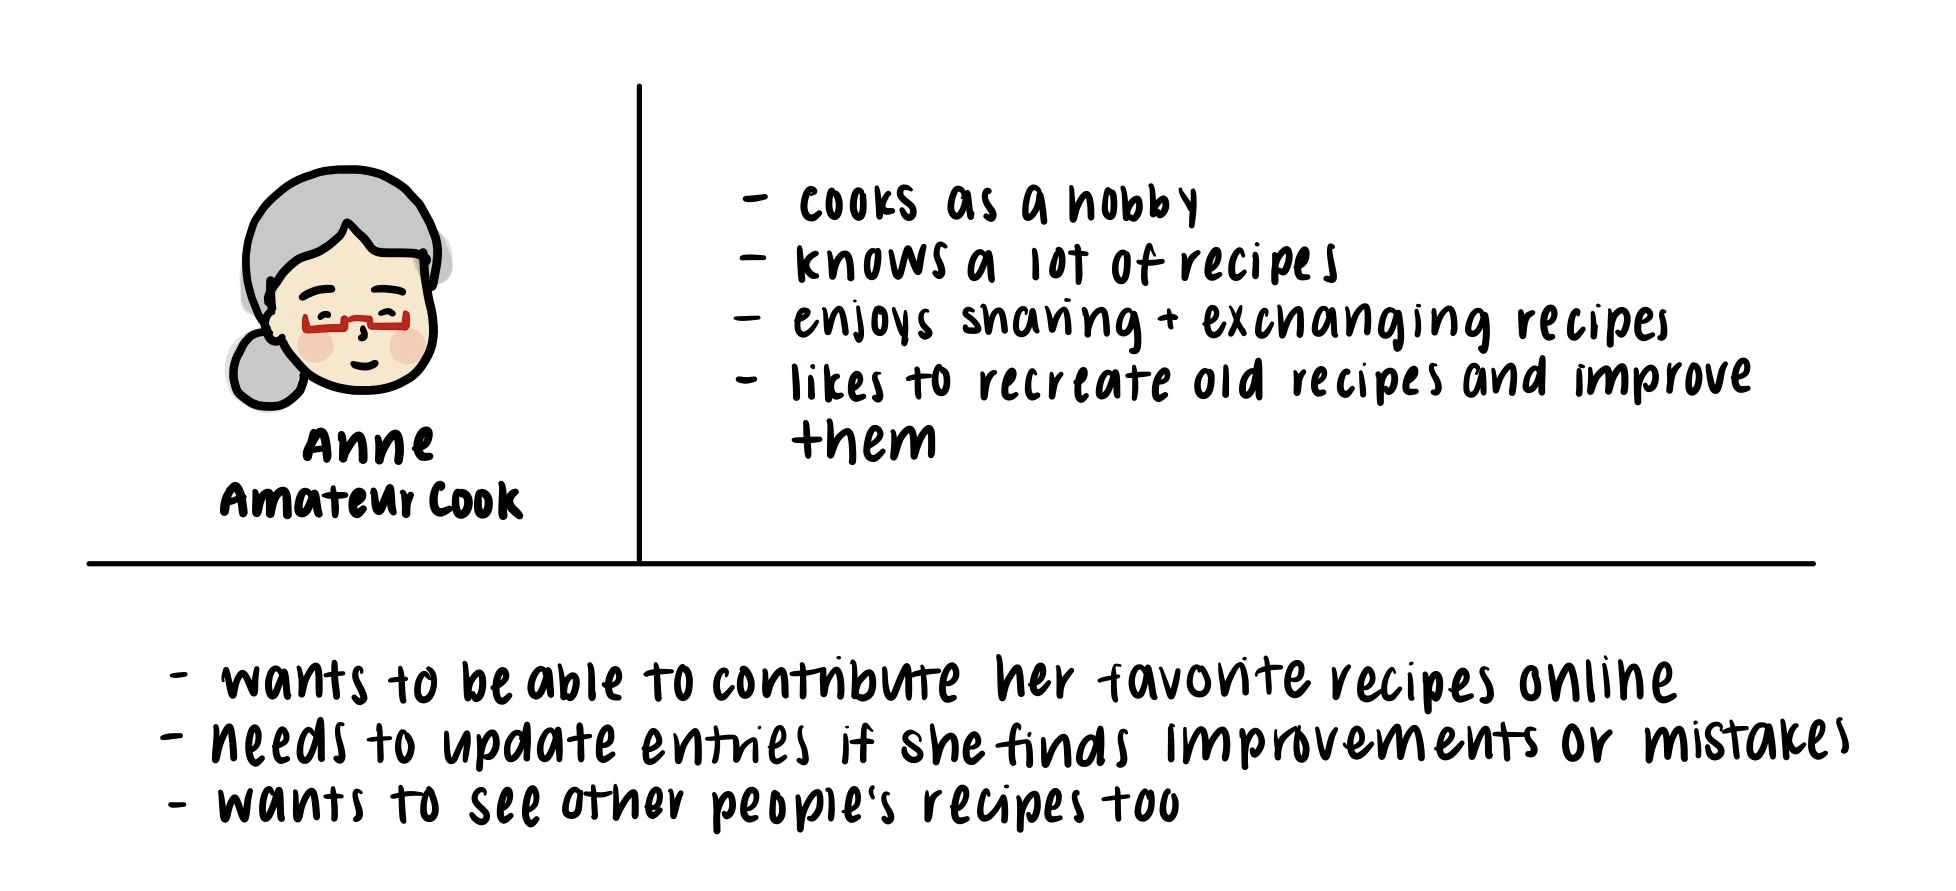 Anne
Amateur Cook
- cooks as a hobby
- knows a lot of recipes
- enjoys sharing + exchanging recipes
- likes to recreate old recipes and improve
them
- wants to be able to contribute her favorite recipes online
- needs to update entries if she finds improvements or mistakes
- wants to see other people's recipes too